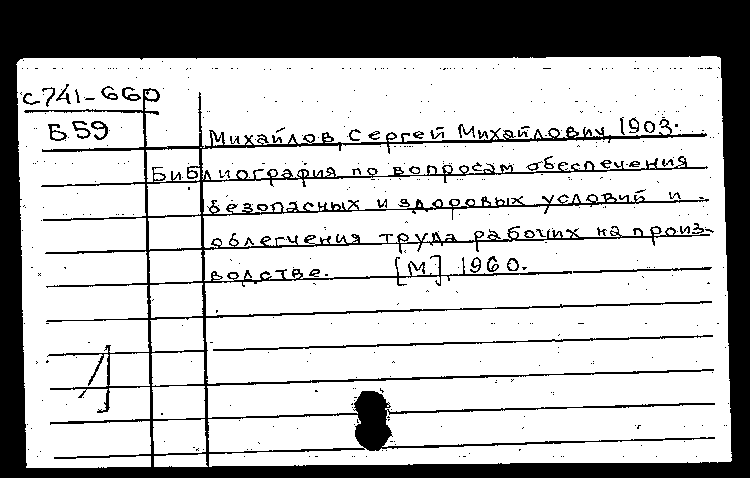 с741-660
Б59
Михайлов, Сергей Михайлович, 1903-
Библиография по вопросам обеспечения
безопасных и здоровых условий и
облегчения труда рабочих на произ-
водстве. [М], 1960.
1